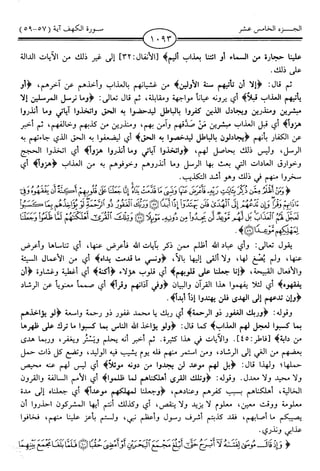 الجـزء الخامس عشر
١٠٩٣
سورة الكهف آية (٥٧-٥٩)
علينا حجارة من السماء أو ائتنا بعذاب أليم﴾ [الأنفال: ٣٢] إلى غير ذلك من الآيات الدالة
على ذلك.
ثم قال: ﴿إلا أن تأتيهم سنة الأولين﴾ من غشيانهم بالعذاب وأخذهم عن آخرهم، ﴿أو
يأتيهم العذاب قبلاً﴾ أي يرونه عياناً مواجهة ومقابلة، ثم قال تعالى: ﴿وما نرسل المرسلين إلا
مبشرين ومنذرين ويجادل الذين كفروا بالباطل ليدحضوا به الحق واتخذوا آياتي وما أنذروا
هزواً﴾ أي قبل العذاب مبشرين من صدّقهم وآمن بهم، ومنذرين من كذبهم وخالفهم، ثم أخبر
عن الكفار بأنهم ﴿يجادلون بالباطل ليدحضوا به الحق﴾ أي ليضعفوا به الحق الذي جاءتهم به
الرسل، وليس ذلك بحاصل لهم، ﴿واتخذوا آياتي وما أنذروا هزواً﴾ أي اتخذوا الحجج
وخوارق العادات التي بعث بها الرسل وما أنذروهم وخوفوهم به من العذاب ﴿هزواً﴾ أي
سخروا منهم في ذلك وهو أشد التكذيب.
﴿وَمَنْ أَظْلَمُ مِمَّن ذُكِّرَ بِآيَاتِ رَبِّهِ فَأَعْرَضَ عَنْهَا وَنَسِيَ مَا قَدَّمَتْ يَدَاهُ إِنَّا جَعَلْنَا عَلَى قُلُوبِهِمْ أَكِنَّةً أَن يَفْقَهُوهُ وَفِي
آذَانِهِمْ وَقْرًا وَإِن تَدْعُهُمْ إِلَى الْهُدَى فَلَن يَهْتَدُوا إِذًا أَبَدًا ۝ وَرَبُّكَ الْغَفُورُ ذُو الرَّحْمَةِ لَوْ يُؤَاخِذُهُم بِمَا كَسَبُوا
لَعَجَّلَ لَهُمُ الْعَذَابَ بَل لَّهُم مَّوْعِدٌ لَّن يَجِدُوا مِن دُونِهِ مَوْئِلًا ۝ وَتِلْكَ الْقُرَى أَهْلَكْنَاهُمْ لَمَّا ظَلَمُوا وَجَعَلْنَا
لِمَهْلِكِهِم مَّوْعِدًا ۝﴾.
يقول تعالى: وأي عباد الله أظلم ممن ذكر بآيات الله فأعرض عنها، أي تناساها وأعرض
عنها، ولم يُصْغِ لها، ولا ألقى إليها بالاً، ﴿ونسي ما قدمت يداه﴾ أي من الأعمال السيئة
والأفعال القبيحة، ﴿إنا جعلنا على قلوبهم﴾ أي قلوب هؤلاء ﴿أكنة﴾ أي أغطية وغشاوة ﴿أن
يفقهوه﴾ أي لئلا يفهموا هذا القرآن والبيان ﴿وفي آذانهم وقراً﴾ أي صمماً معنوياً عن الرشاد
﴿وإن تدعهم إلى الهدى فلن يهتدوا إذاً أبداً﴾.
وقوله: ﴿وربك الغفور ذو الرحمة﴾ أي ربك يا محمد غفور ذو رحمة واسعة ﴿لو يؤاخذهم
بما كسبوا لعجل لهم العذاب﴾ كما قال: ﴿ولو يؤاخذ الله الناس بما كسبوا ما ترك على ظهرها
من دابة﴾ [فاطر: ٤٥]. والآيات في هذا كثيرة. ثم أخبر أنه يحلم ويَسْتُر ويغفر، وربما هدى
بعضهم من الغي إلى الرشاد، ومن استمر منهم فله يوم يشيب فيه الوليد، وتضع كل ذات حمل
حملها، ولهذا قال: ﴿بل لهم موعد لن يجدوا من دونه موئلاً﴾ أي ليس لهم عنه محيص
ولا محيد ولا معدل. وقوله: ﴿وتلك القرى أهلكناهم لما ظلموا﴾ أي الأمم السالفة والقرون
الخالية، أهلكناهم بسبب كفرهم وعنادهم، ﴿وجعلنا لمهلكهم موعداً﴾ أي جعلناه إلى مدة
معلومة ووقت معين، معلوم لا يزيد ولا ينقص، أي وكذلك أنتم أيها المشركون احذروا أن
يصيبكم ما أصابهم، فقد كذبتم أشرف رسول وأعظم نبي، ولستم بأعز علينا منهم، فخافوا
عذابي ونذري.